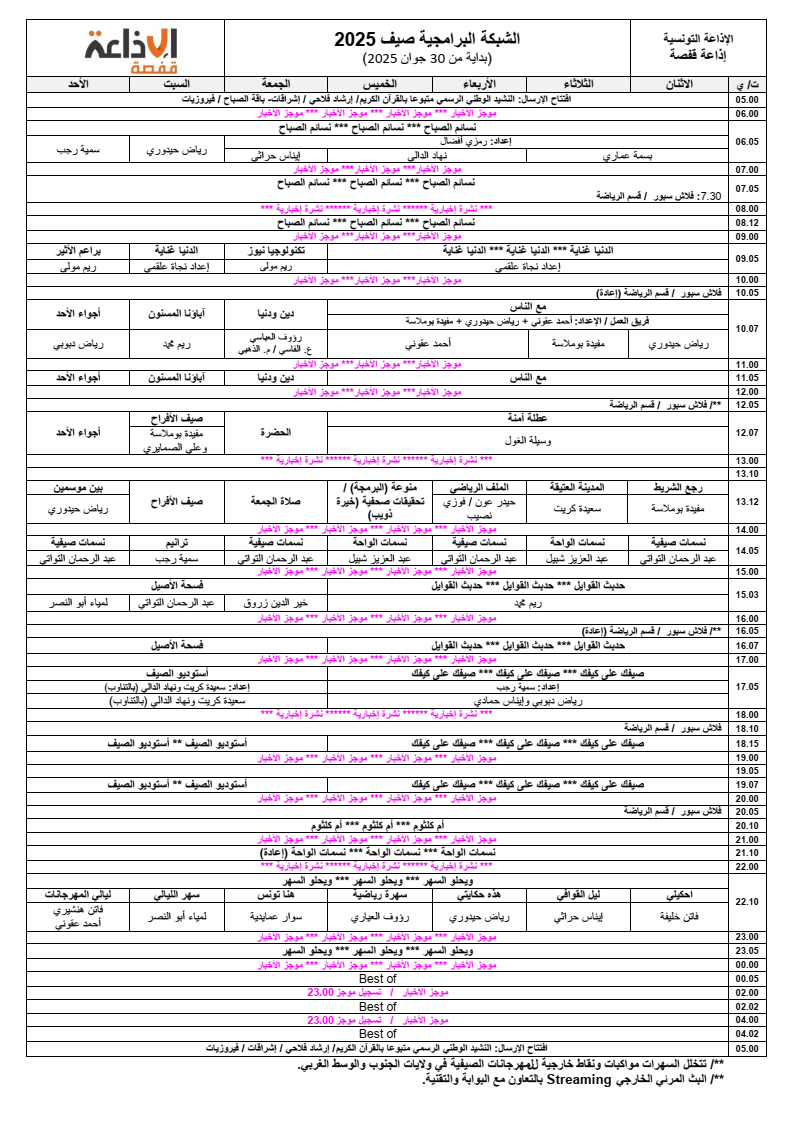 الإذاعة التونسية
إذاعة قفصة
الشبكة البرامجية صيف 2025
(بداية من 30 جوان 2025)
الإذاعة
قفصة
ت/ ي الاثنان الثلاثاء الأربعاء الخميس الجمعة السبت الأحد
05.00 افتتاح الإرسال: النشيد الوطني الرسمي متبوعا بالقرآن الكريم/ إرشاد فلاحي / إشراقات- باقة الصباح / فيروزيات
06.00 موجز الأخبار *** موجز الأخبار *** موجز الأخبار *** موجز الأخبار
06.05 نسائم الصباح *** نسائم الصباح *** نسائم الصباح
إعداد: رمزي أفضال
بسمة عماري نهاد الدالي إيناس حراثي رياض حيدوري سمية رجب
07.00 موجز الأخبار*** موجز الأخبار*** موجز الأخبار
07.05 نسائم الصباح *** نسائم الصباح *** نسائم الصباح
7.30: فلاش سبور / قسم الرياضة
08.00 *** نشرة إخبارية ****** نشرة إخبارية ****** نشرة إخبارية ***
08.12 نسائم الصباح *** نسائم الصباح *** نسائم الصباح
09.00 موجز الأخبار*** موجز الأخبار*** موجز الأخبار
09.05 الدنيا غناية *** الدنيا غناية *** الدنيا غناية تكنولوجيا نيوز الدنيا غناية براعم الأثير
إعداد نجاة علقمي ريم مولى إعداد نجاة علقمي ريم مولى
10.00 موجز الأخبار*** موجز الأخبار*** موجز الأخبار
10.05 فلاش سبور / قسم الرياضة (إعادة)
10.07 مع الناس دين ودنيا آباؤنا المسنون أجواء الأحد
فريق العمل / الإعداد: أحمد عقوني + رياض حيدوري + مفيدة بوملاسة
رياض حيدوري مفيدة بوملاسة أحمد عقوني رؤوف العباسي ريم محمد رياض دبوبي
ع. القاسي / م. الذهبي
11.00 موجز الأخبار*** موجز الأخبار*** موجز الأخبار
11.05 مع الناس دين ودنيا آباؤنا المسنون أجواء الأحد
12.00 موجز الأخبار*** موجز الأخبار*** موجز الأخبار
12.05 **/ فلاش سبور / قسم الرياضة
12.07 عطلة آمنة الحضرة صيف الأفراح أجواء الأحد
وسيلة الغول مفيدة بوملاسة
وعلي الصمايري
13.00 *** نشرة إخبارية ****** نشرة إخبارية ****** نشرة إخبارية ***
13.10
13.12 رجع الشريط المدينة العتيقة الملف الرياضي منوعة (البرمجة) / تحقيقات صحفية (خيرة ذويب) صلاة الجمعة صيف الأفراح بين موسمين
مفيدة بوملاسة سعيدة كريت حيدر عون / فوزي نصيب رياض حيدوري
14.00 موجز الأخبار *** موجز الأخبار *** موجز الأخبار *** موجز الأخبار
14.05 نسمات صيفية نسمات الواحة نسمات صيفية نسمات الواحة نسمات صيفية ترانيم نسمات صيفية
عبد الرحمان التواتي عبد العزيز شبيل عبد الرحمان التواتي عبد العزيز شبيل عبد الرحمان التواتي سمية رجب عبد الرحمان التواتي
15.00 موجز الأخبار *** موجز الأخبار *** موجز الأخبار *** موجز الأخبار
15.03 حديث القوايل *** حديث القوايل *** حديث القوايل فسحة الأصيل
ريم محمد خير الدين زروق عبد الرحمان التواتي لمياء أبو النصر
16.00 موجز الأخبار *** موجز الأخبار *** موجز الأخبار *** موجز الأخبار
16.05 **/ فلاش سبور / قسم الرياضة (إعادة)
16.07 حديث القوايل *** حديث القوايل *** حديث القوايل فسحة الأصيل
17.00 موجز الأخبار *** موجز الأخبار *** موجز الأخبار *** موجز الأخبار
17.05 صيفك على كيفك *** صيفك على كيفك *** صيفك على كيفك أستوديو الصيف
إعداد: سمية رجب إعداد: سعيدة كريت ونهاد الدالي (بالتناوب)
رياض دبوبي وإيناس حمادي سعيدة كريت ونهاد الدالي (بالتناوب)
18.00 *** نشرة إخبارية ****** نشرة إخبارية ****** نشرة إخبارية ***
18.10 فلاش سبور / قسم الرياضة
18.15 صيفك على كيفك *** صيفك على كيفك *** صيفك على كيفك أستوديو الصيف ** أستوديو الصيف
19.00 موجز الأخبار *** موجز الأخبار *** موجز الأخبار *** موجز الأخبار
19.05
19.07 صيفك على كيفك *** صيفك على كيفك *** صيفك على كيفك أستوديو الصيف ** أستوديو الصيف
20.00 موجز الأخبار *** موجز الأخبار *** موجز الأخبار *** موجز الأخبار
20.05 فلاش سبور / قسم الرياضة
20.10 أم كلثوم *** أم كلثوم *** أم كلثوم
21.00 موجز الأخبار *** موجز الأخبار *** موجز الأخبار *** موجز الأخبار
21.10 نسمات الواحة *** نسمات الواحة *** نسمات الواحة (إعادة)
22.00 *** نشرة إخبارية ****** نشرة إخبارية ****** نشرة إخبارية ***
22.10 ويحلو السهر *** ويحلو السهر *** ويحلو السهر
احكيلي ليل القوافي هذه حكايتي سهرة رياضية هنا تونس سهر الليالي ليالي المهرجانات
فاتن خليفة إيناس حراثي رياض حيدوري رؤوف العياري سوار عمايدية لمياء أبو النصر فاتن هنشيري
أحمد عقوني
23.00 موجز الأخبار *** موجز الأخبار *** موجز الأخبار *** موجز الأخبار
23.05 ويحلو السهر *** ويحلو السهر *** ويحلو السهر
00.00 موجز الأخبار *** موجز الأخبار *** موجز الأخبار *** موجز الأخبار
00.05 Best of
02.00 موجز الأخبار / تسجيل موجز 23.00
02.02 Best of
04.00 موجز الأخبار / تسجيل موجز 23.00
04.02 Best of
05.00 افتتاح الإرسال: النشيد الوطني الرسمي متبوعا بالقرآن الكريم/ إرشاد فلاحي / إشراقات / فيروزيات
**/ تتخلل السهرات مواكبات ونقاط خارجية للمهرجانات الصيفية في ولايات الجنوب والوسط الغربي.
**/ البث المرئي الخارجي Streaming بالتعاون مع البوابة والتقنية.